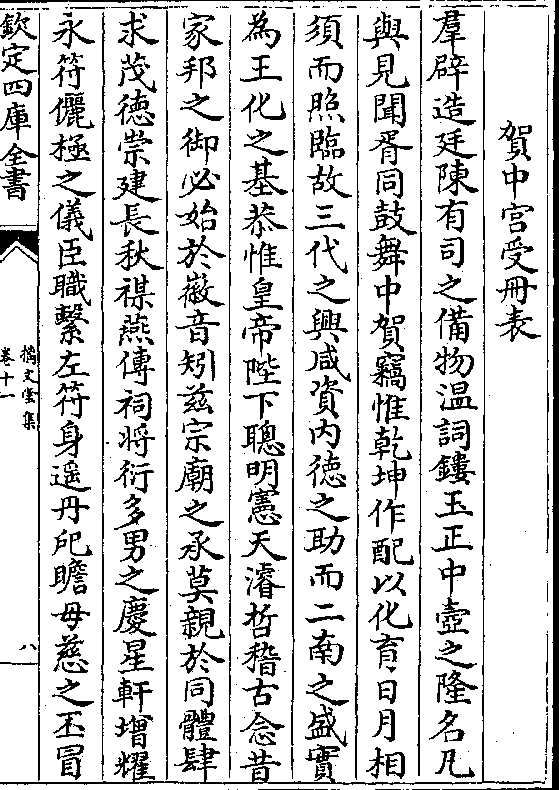 賀中宮受冊表
羣辟造廷陳有司之備物温詞鏤玉正中壼之隆名凡
與見聞胥同鼓舞中賀竊惟乾坤作配以化育日月相
須而照臨故三代之興咸資内德之助而二南之盛實
為王化之基恭惟皇帝陛下聰明憲天濬哲稽古念昔
家邦之御必始於徽音矧兹宗廟之承莫親於同體肆
求茂德崇建長秋禖燕傳祠将衍多男之慶星軒增耀
永符儷極之儀臣職繫左符身遥丹戺瞻母慈之丕冒
欽定四庫全書
摛文堂集
卷十一
八